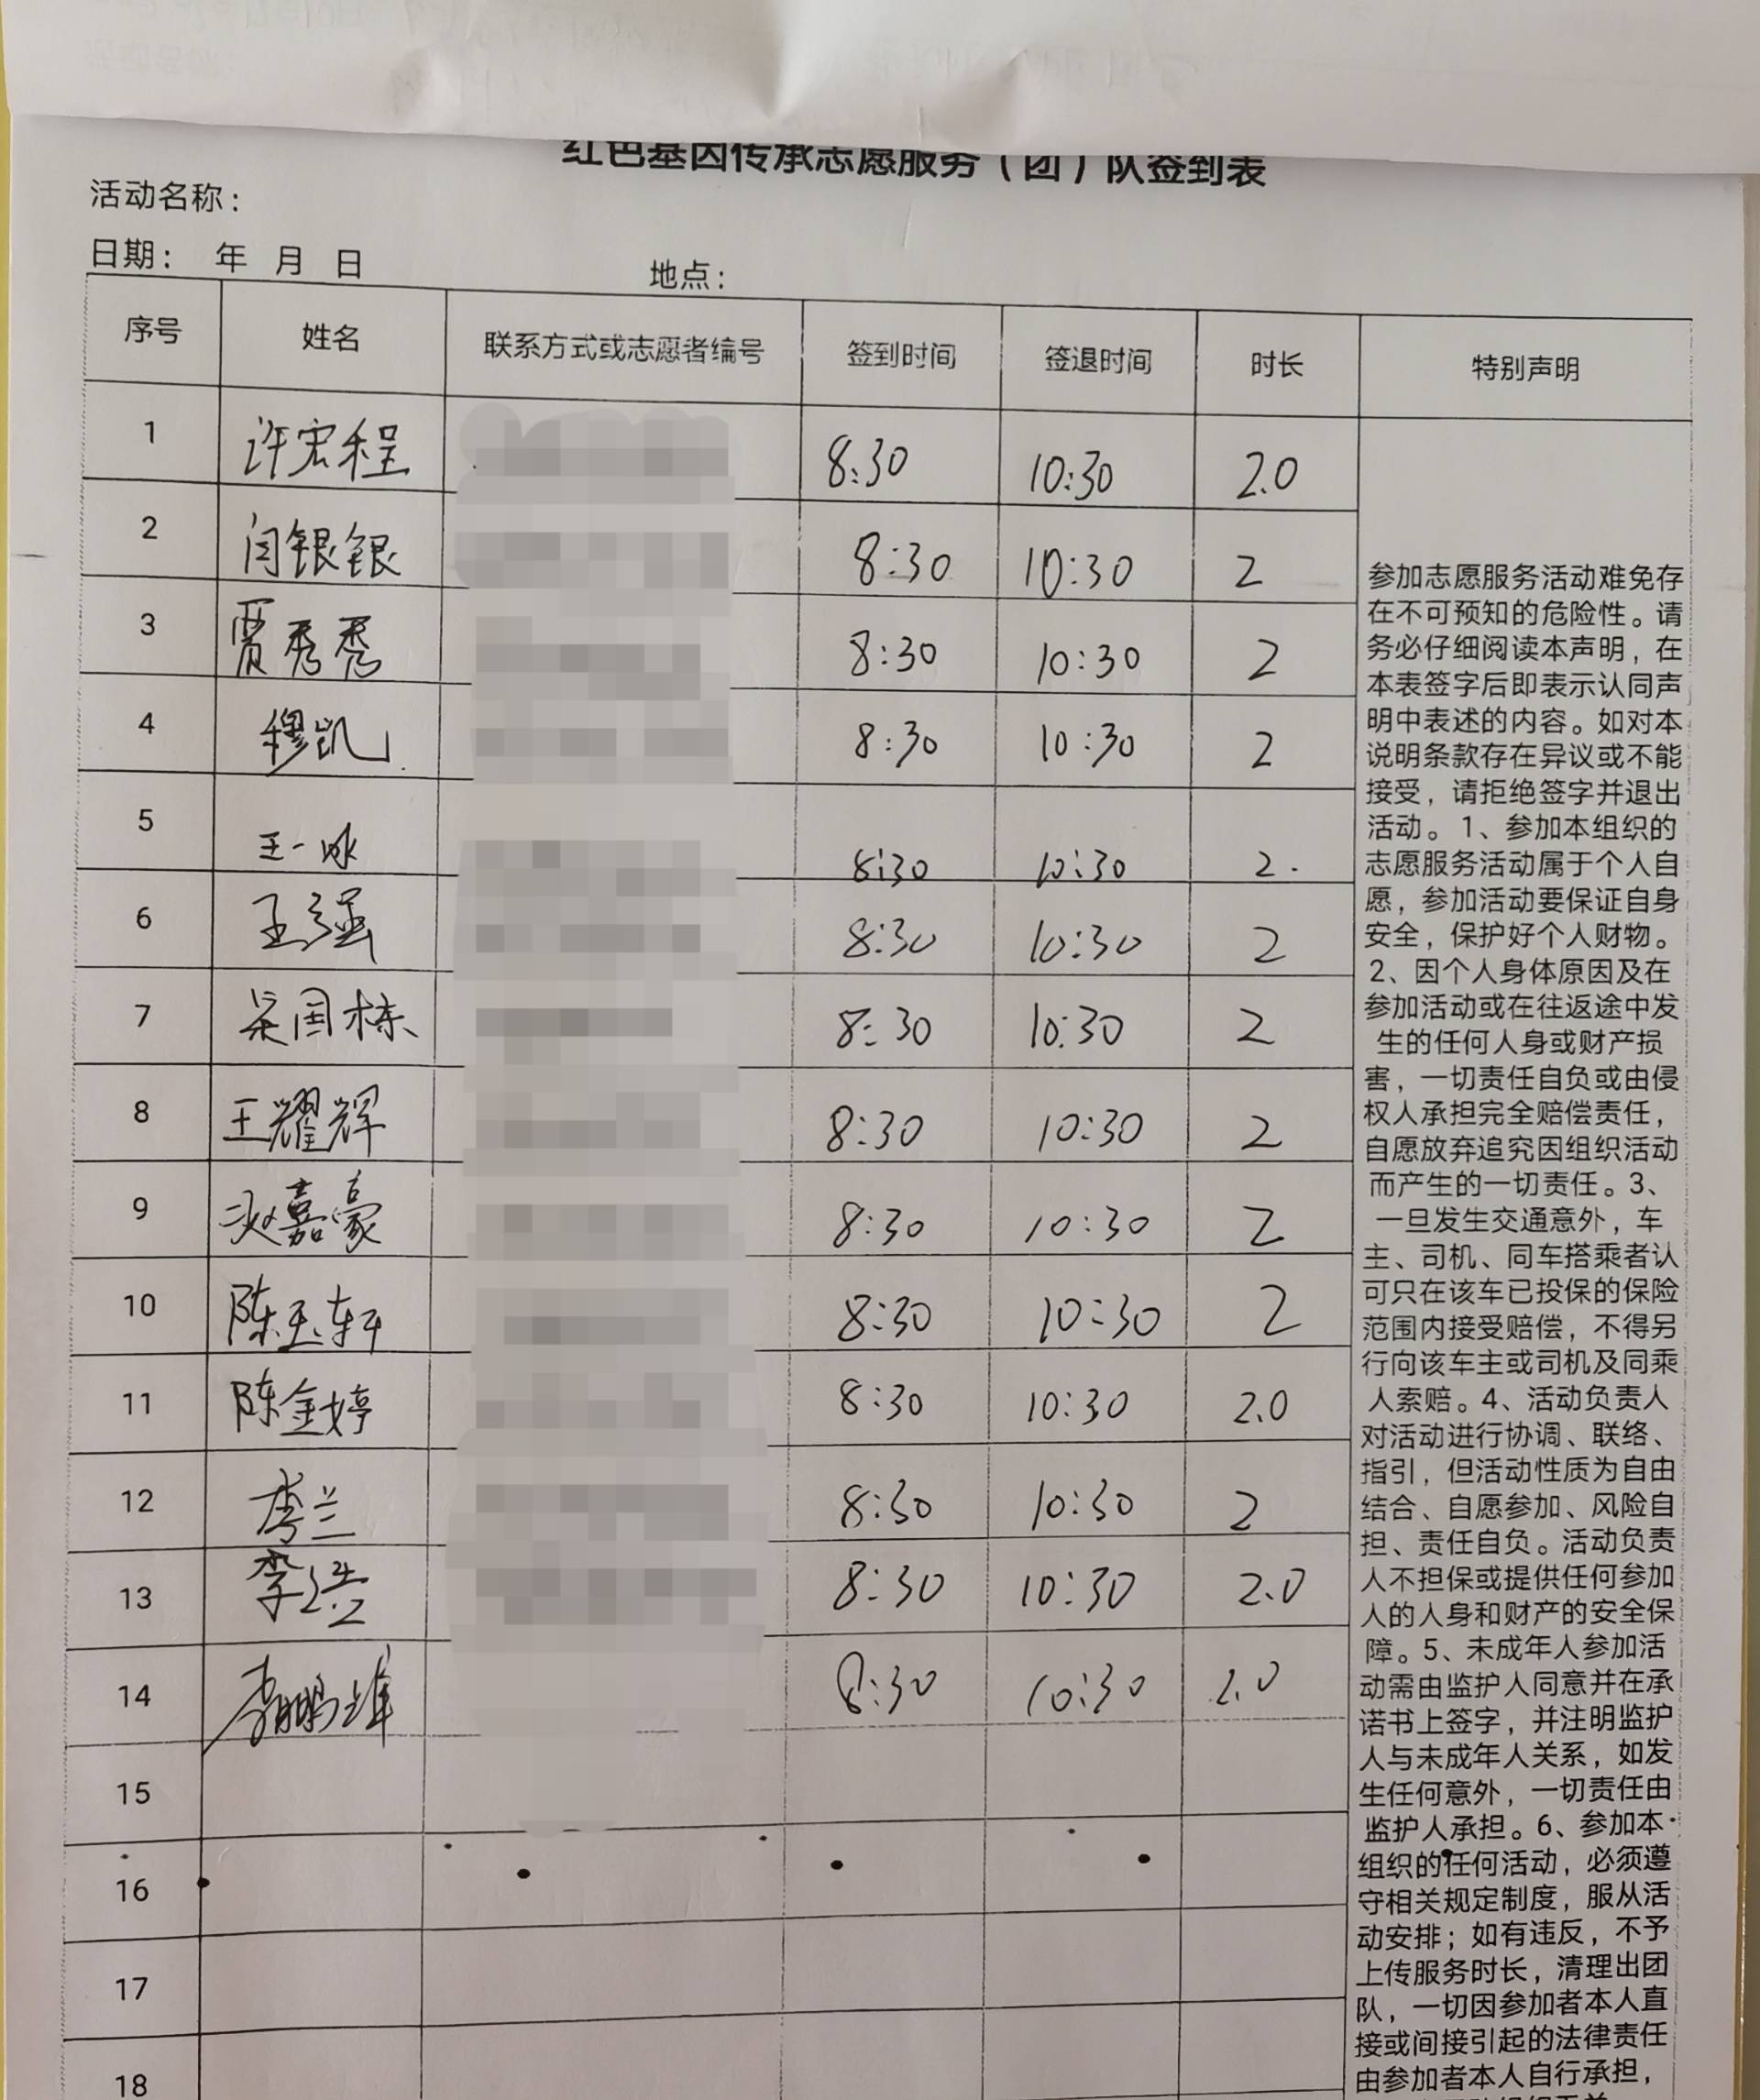 红色基因传承志愿服务（团）队签到表
活动名称：
日期： 年 月 日 地点：
序号 姓名 联系方式或志愿者编号 签到时间 签退时间 时长 特别声明
1 许宏程 8:30 10:30 2.0
2 闫银银 8:30 10:30 2
3 贾秀秀 8:30 10:30 2
4 穆凯 8:30 10:30 2
5 王一冰 8:30 10:30 2.
6 王强 8:30 10:30 2
7 吴国栋 8:30 10:30 2
8 王耀辉 8:30 10:30 2
9 嘉豪 8:30 10:30 2
10 陈玉轩 8:30 10:30 2
11 陈金婷 8:30 10:30 2.0
12 李兰 8:30 10:30 2
13 李浩 8:30 10:30 2.0
14 李鹏 8:30 10:30 2.0
15
16
17
18
参加志愿服务活动难免存
在不可预知的危险性。请
务必仔细阅读本声明，在
本表签字后即表示认同声
明中表述的内容。如对本
说明条款存在异议或不能
接受，请拒绝签字并退出
活动。1、参加本组织的
志愿服务活动属于个人自
愿，参加活动要保证自身
安全，保护好个人财物。
2、因个人身体原因及在
参加活动或在往返途中发
生的任何人身或财产损
害，一切责任自负或由侵
权人承担完全赔偿责任，
自愿放弃追究因组织活动
而产生的一切责任。3、
一旦发生交通意外，车
主、司机、同车搭乘者认
可只在该车已投保的保险
范围内接受赔偿，不得另
行向该车主或司机及同乘
人索赔。4、活动负责人
对活动进行协调、联络、
指引，但活动性质为自由
结合、自愿参加、风险自
担、责任自负。活动负责
人不担保或提供任何参加
人的人身和财产的安全保
障。5、未成年人参加活
动需由监护人同意并在承
诺书上签字，并注明监护
人与未成年人关系，如发
生任何意外，一切责任由
监护人承担。6、参加本
组织的任何活动，必须遵
守相关规定制度，服从活
动安排；如有违反，不予
上传服务时长，清理出团
队，一切因参加者本人直
接或间接引起的法律责任
由参加者本人自行承担，